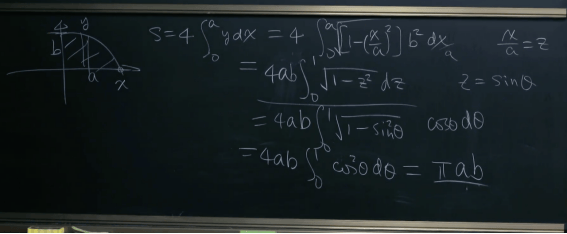 y
b
a
x
S=4∫₀ᵃ ydx = 4 ∫₀ᵃ √[1-(x/a)²]b² dx a
x/a = z
= 4ab∫₀¹ √1-z² dz
z = sinθ
= 4ab∫₀¹ √1-sin²θ cosθ dθ
= 4ab ∫₀¹ cos²θ dθ = πab